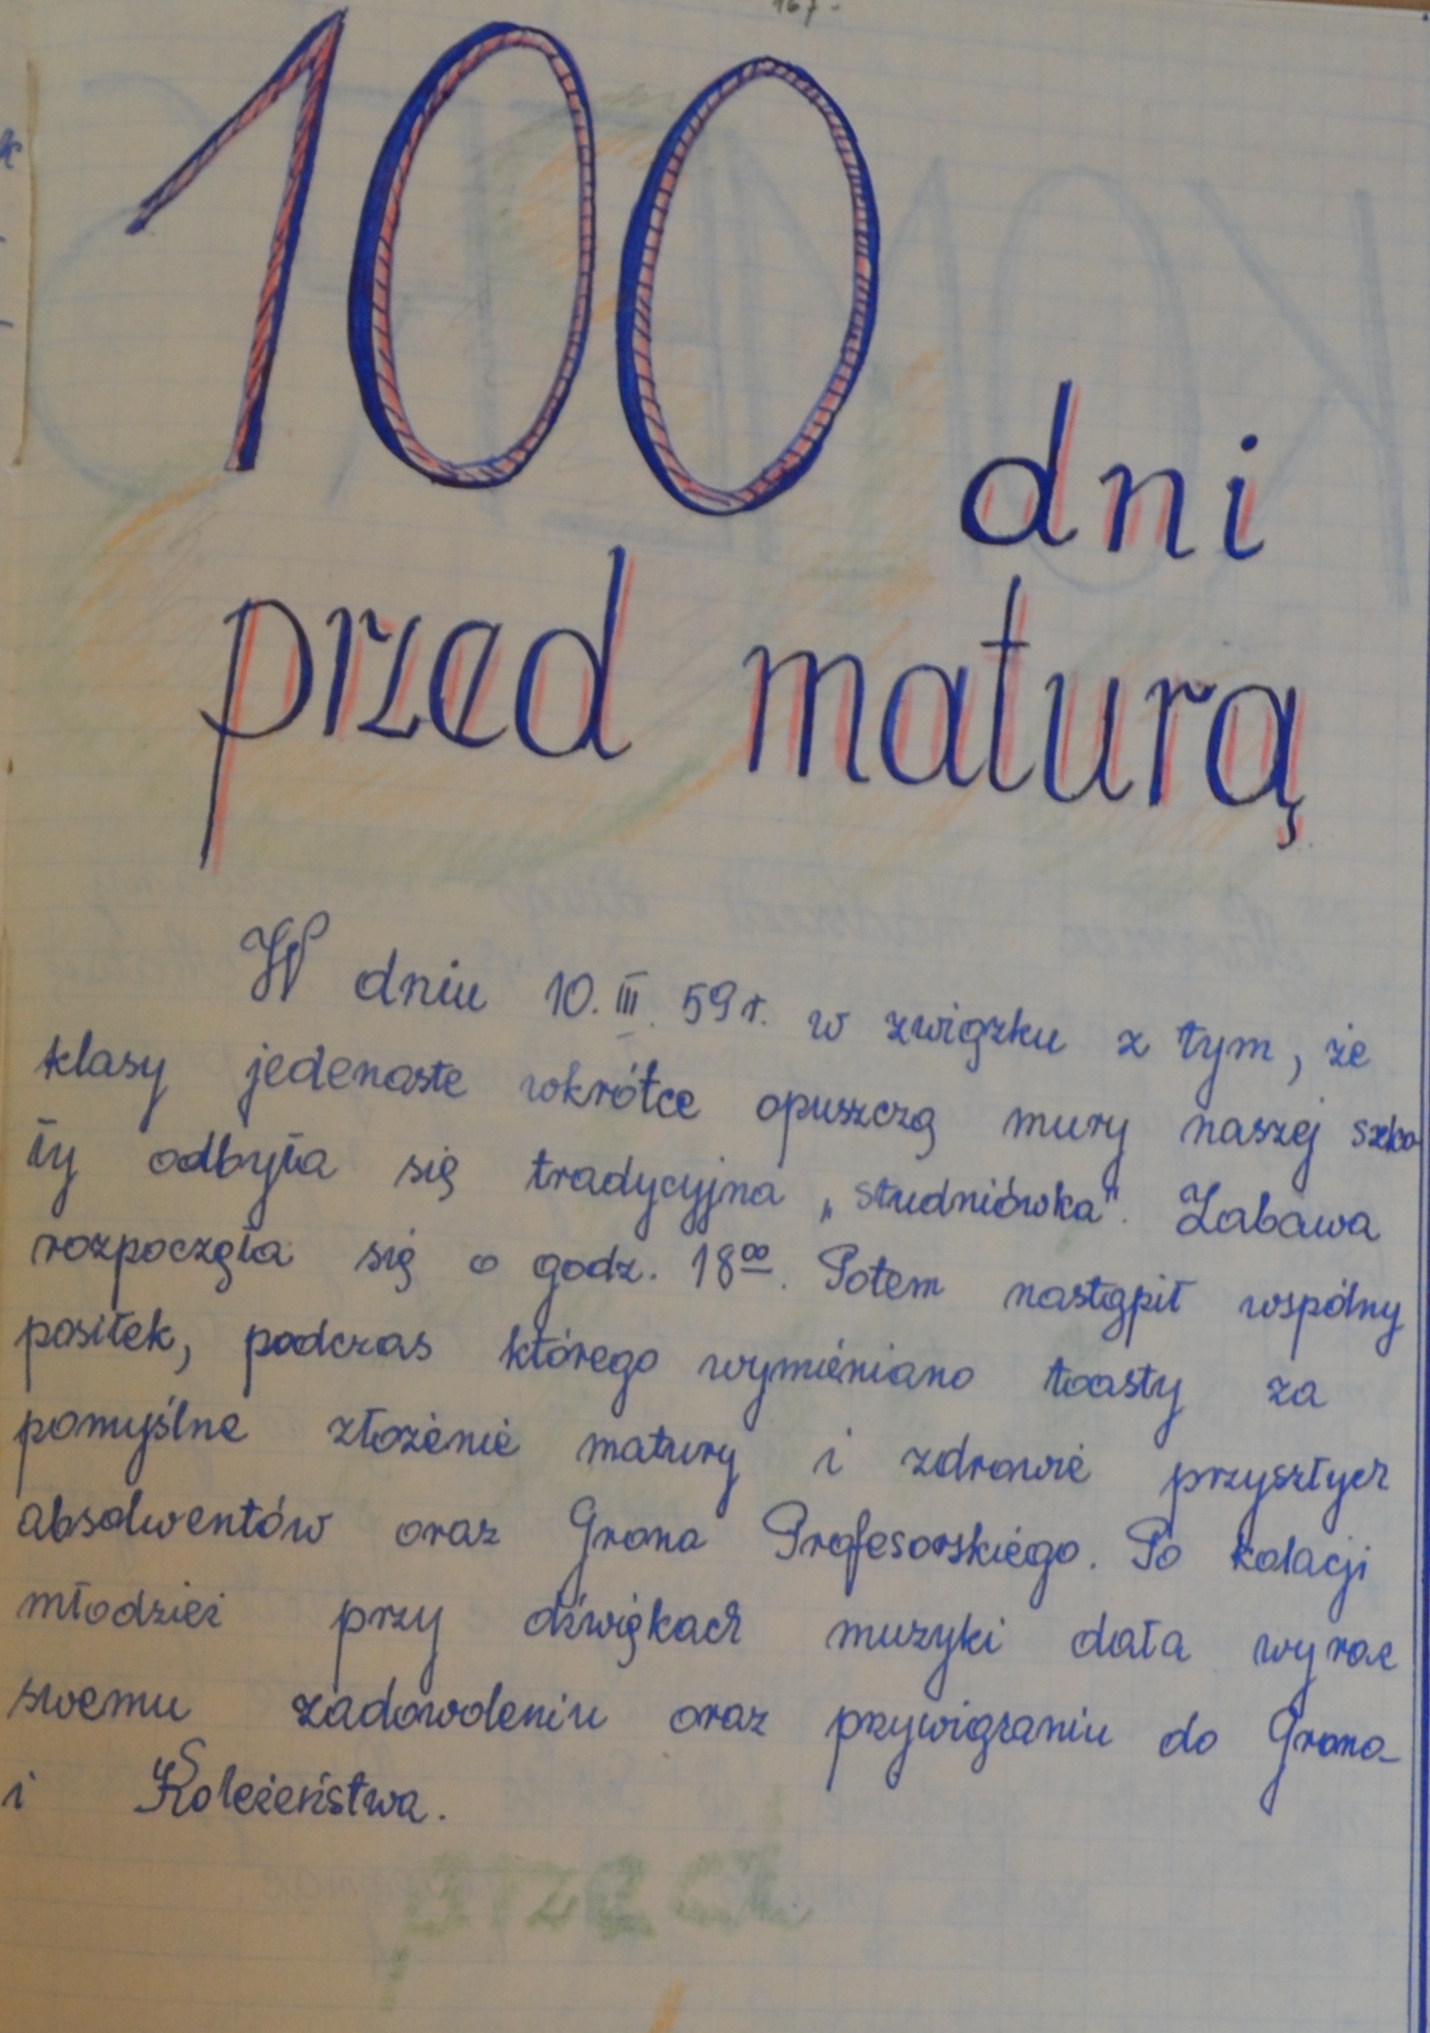 167.
100 dni
przed maturą
W dniu 10. III. 59 r. w związku z tym, że
klasy jedenaste wkrótce opuszczą mury naszej szko
ły odbyła się tradycyjna „studniówka". Zabawa
rozpoczęła się o godz. 18⁰⁰. Potem nastąpił wspólny
posiłek, podczas którego wymieniano toasty za
pomyślne złożenie matury i zdrowie przyszłych
absolwentów oraz Grona Profesorskiego. Po kolacji
młodzież przy dźwiękach muzyki dała wyraz
swemu zadowoleniu oraz przywiązaniu do Grona
i Koleżeństwa.